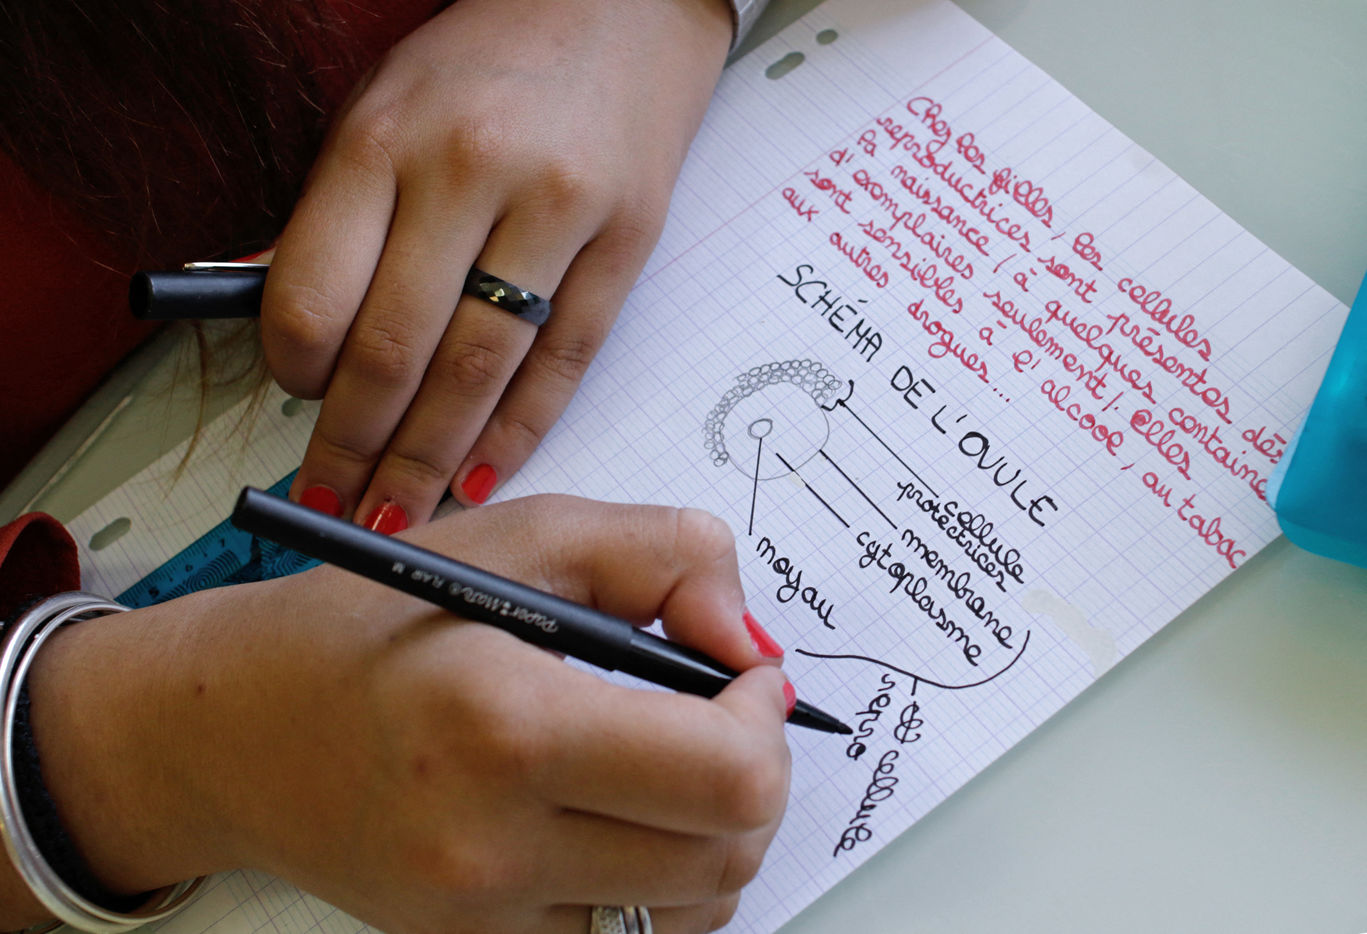 Chez les filles, les cellules
reproductrices sont présentes dès
la naissance, à quelques centaines
d'exemplaires seulement! Elles
sont sensibles à l'alcool, au tabac
aux autres drogues...
SCHÉMA DE L'OVULE
cellule
protéctrices
membrane
cytoplasme
noyau
cellule
Paper:Mate® FLAIR M